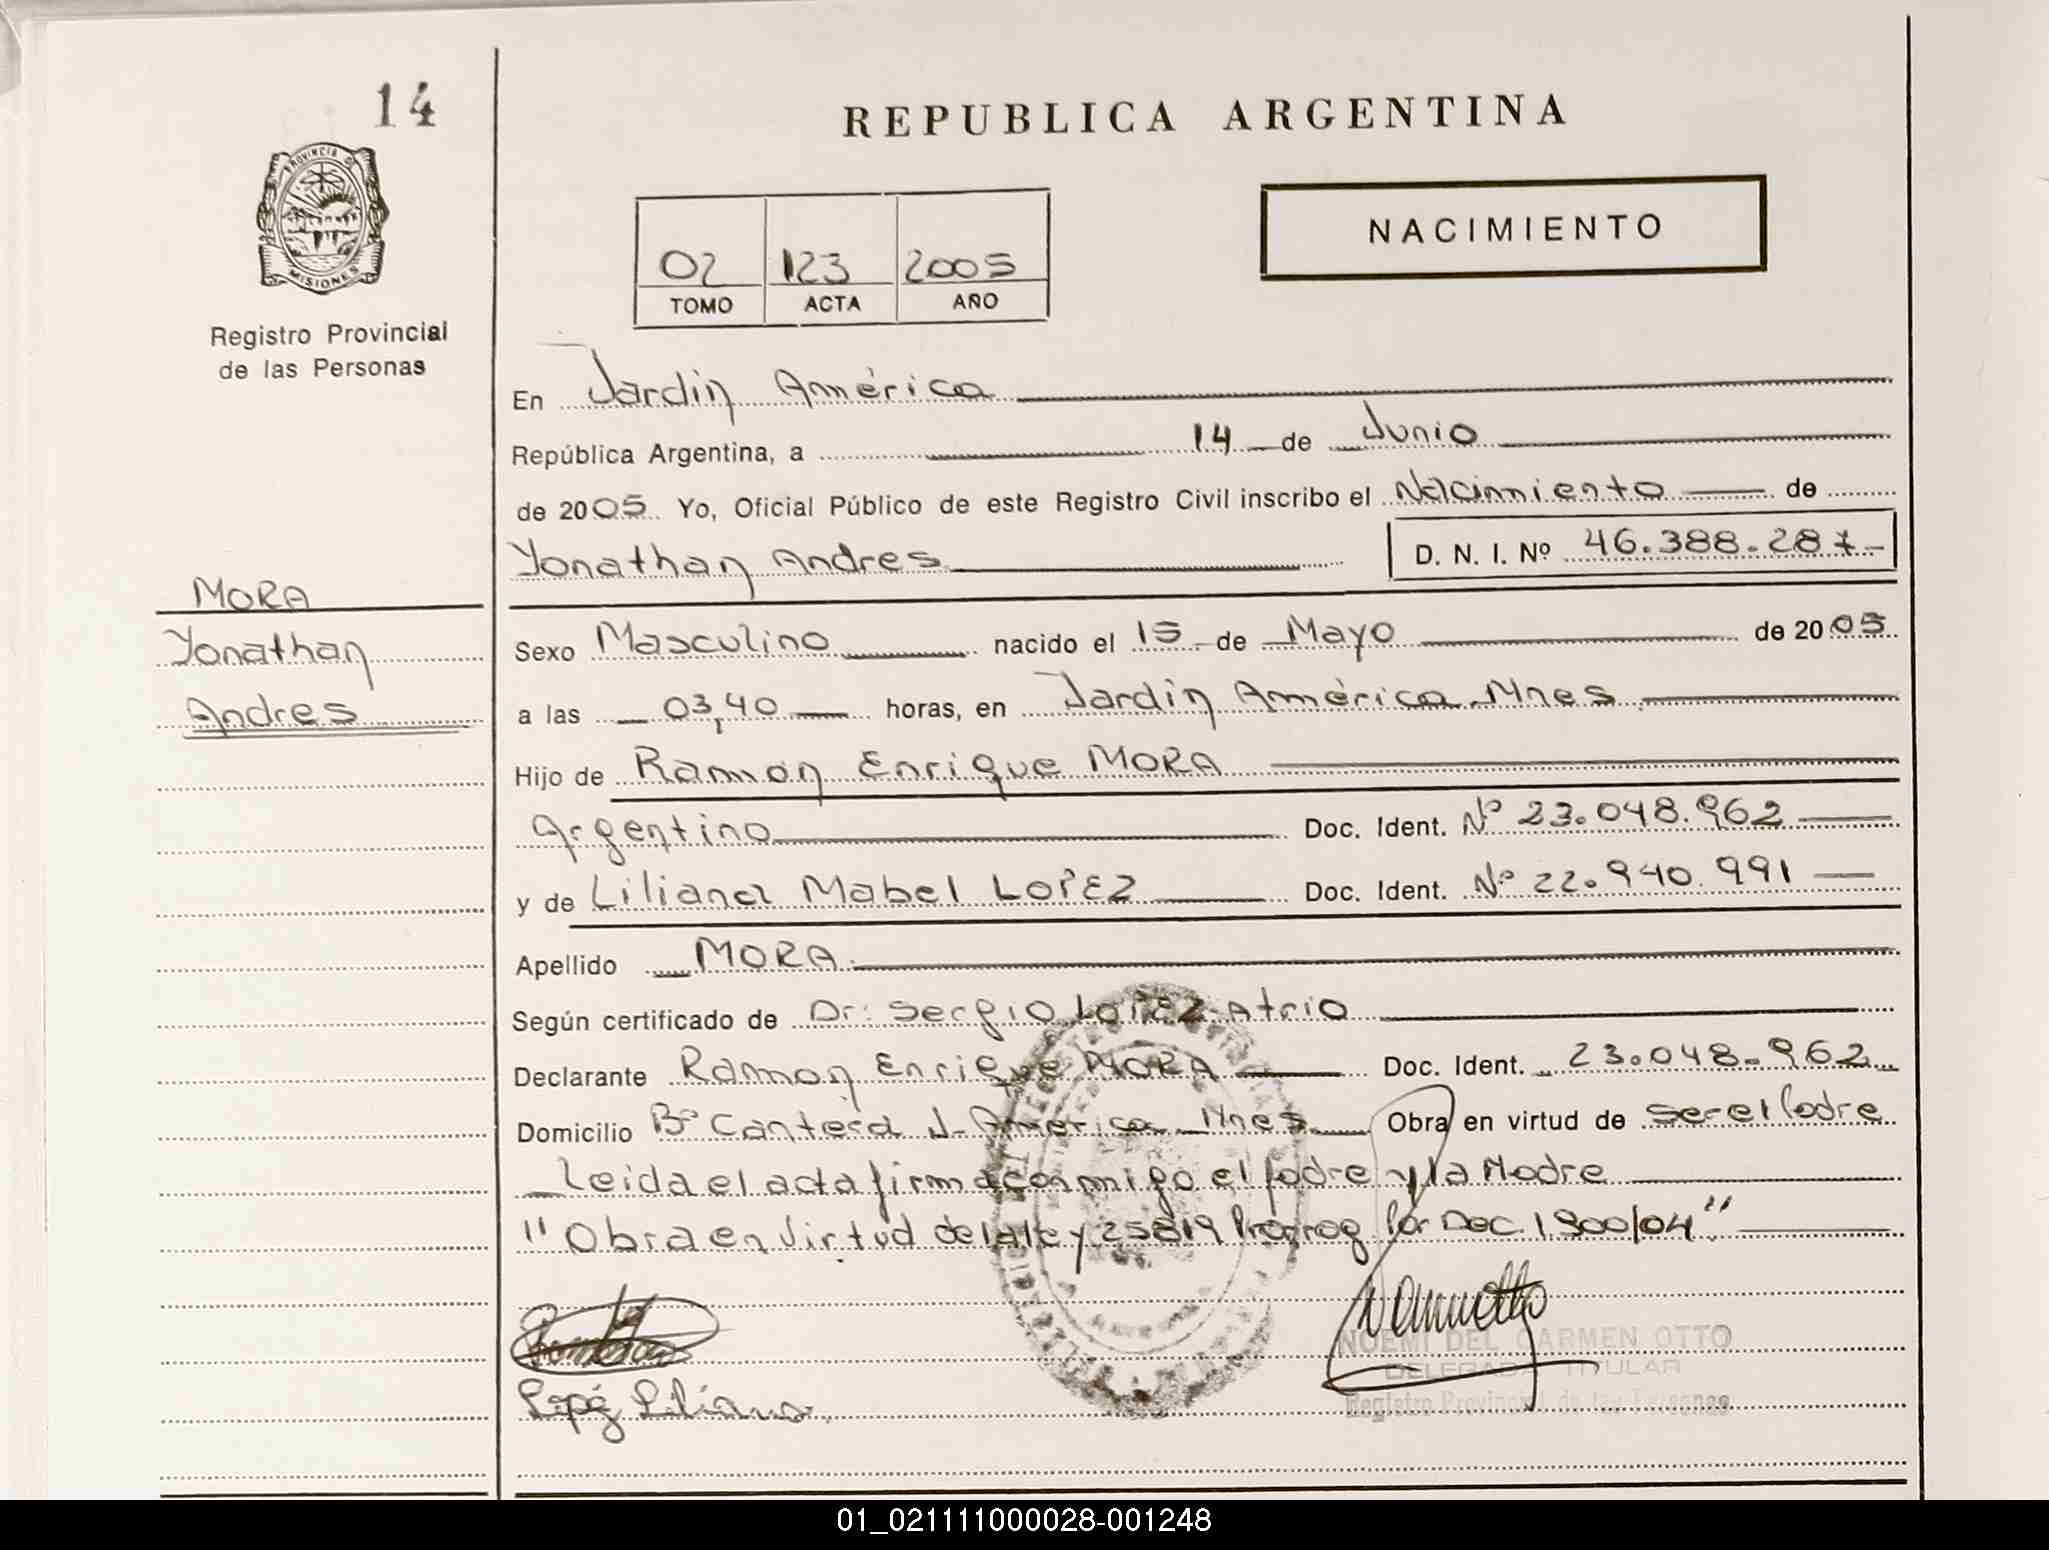 14
REPUBLICA ARGENTINA
PROVINCIA DE
MISIONES
Registro Provincial
de las Personas
NACIMIENTO
02 123 2005
TOMO ACTA AÑO
En Jardin América
República Argentina, a 14 de Junio
de 2005 Yo, Oficial Público de este Registro Civil inscribo el Nacimiento de
Yonathan Andres D. N. I. Nº 46.388.287
MORA
Yonathan
Andres
Sexo Masculino nacido el 15 de Mayo de 2005
a las 03,40 horas, en Jardin América Mnes
Hijo de Ramon Enrique MORA
Argentino Doc. Ident. Nº 23.048.962
y de Liliana Mabel LOPEZ Doc. Ident. Nº 22.940.991
Apellido MORA
Según certificado de Dr: Sergio LOPEZ Atrio
Declarante Ramon Enrique MORA Doc. Ident. 23.048.962
Domicilio Bº Cantera J. América Mnes Obra en virtud de ser el Padre
Leida el acta firma conmigo el Padre y la Madre
"Obra en Virtud de la ley 25819 Prorrog Por Dec. 1900/04"
Lopez Liliana
NOEMI DEL CARMEN OTTO
DELEGADA TITULAR
Registro Provincial de las Personas
01_021111000028-001248